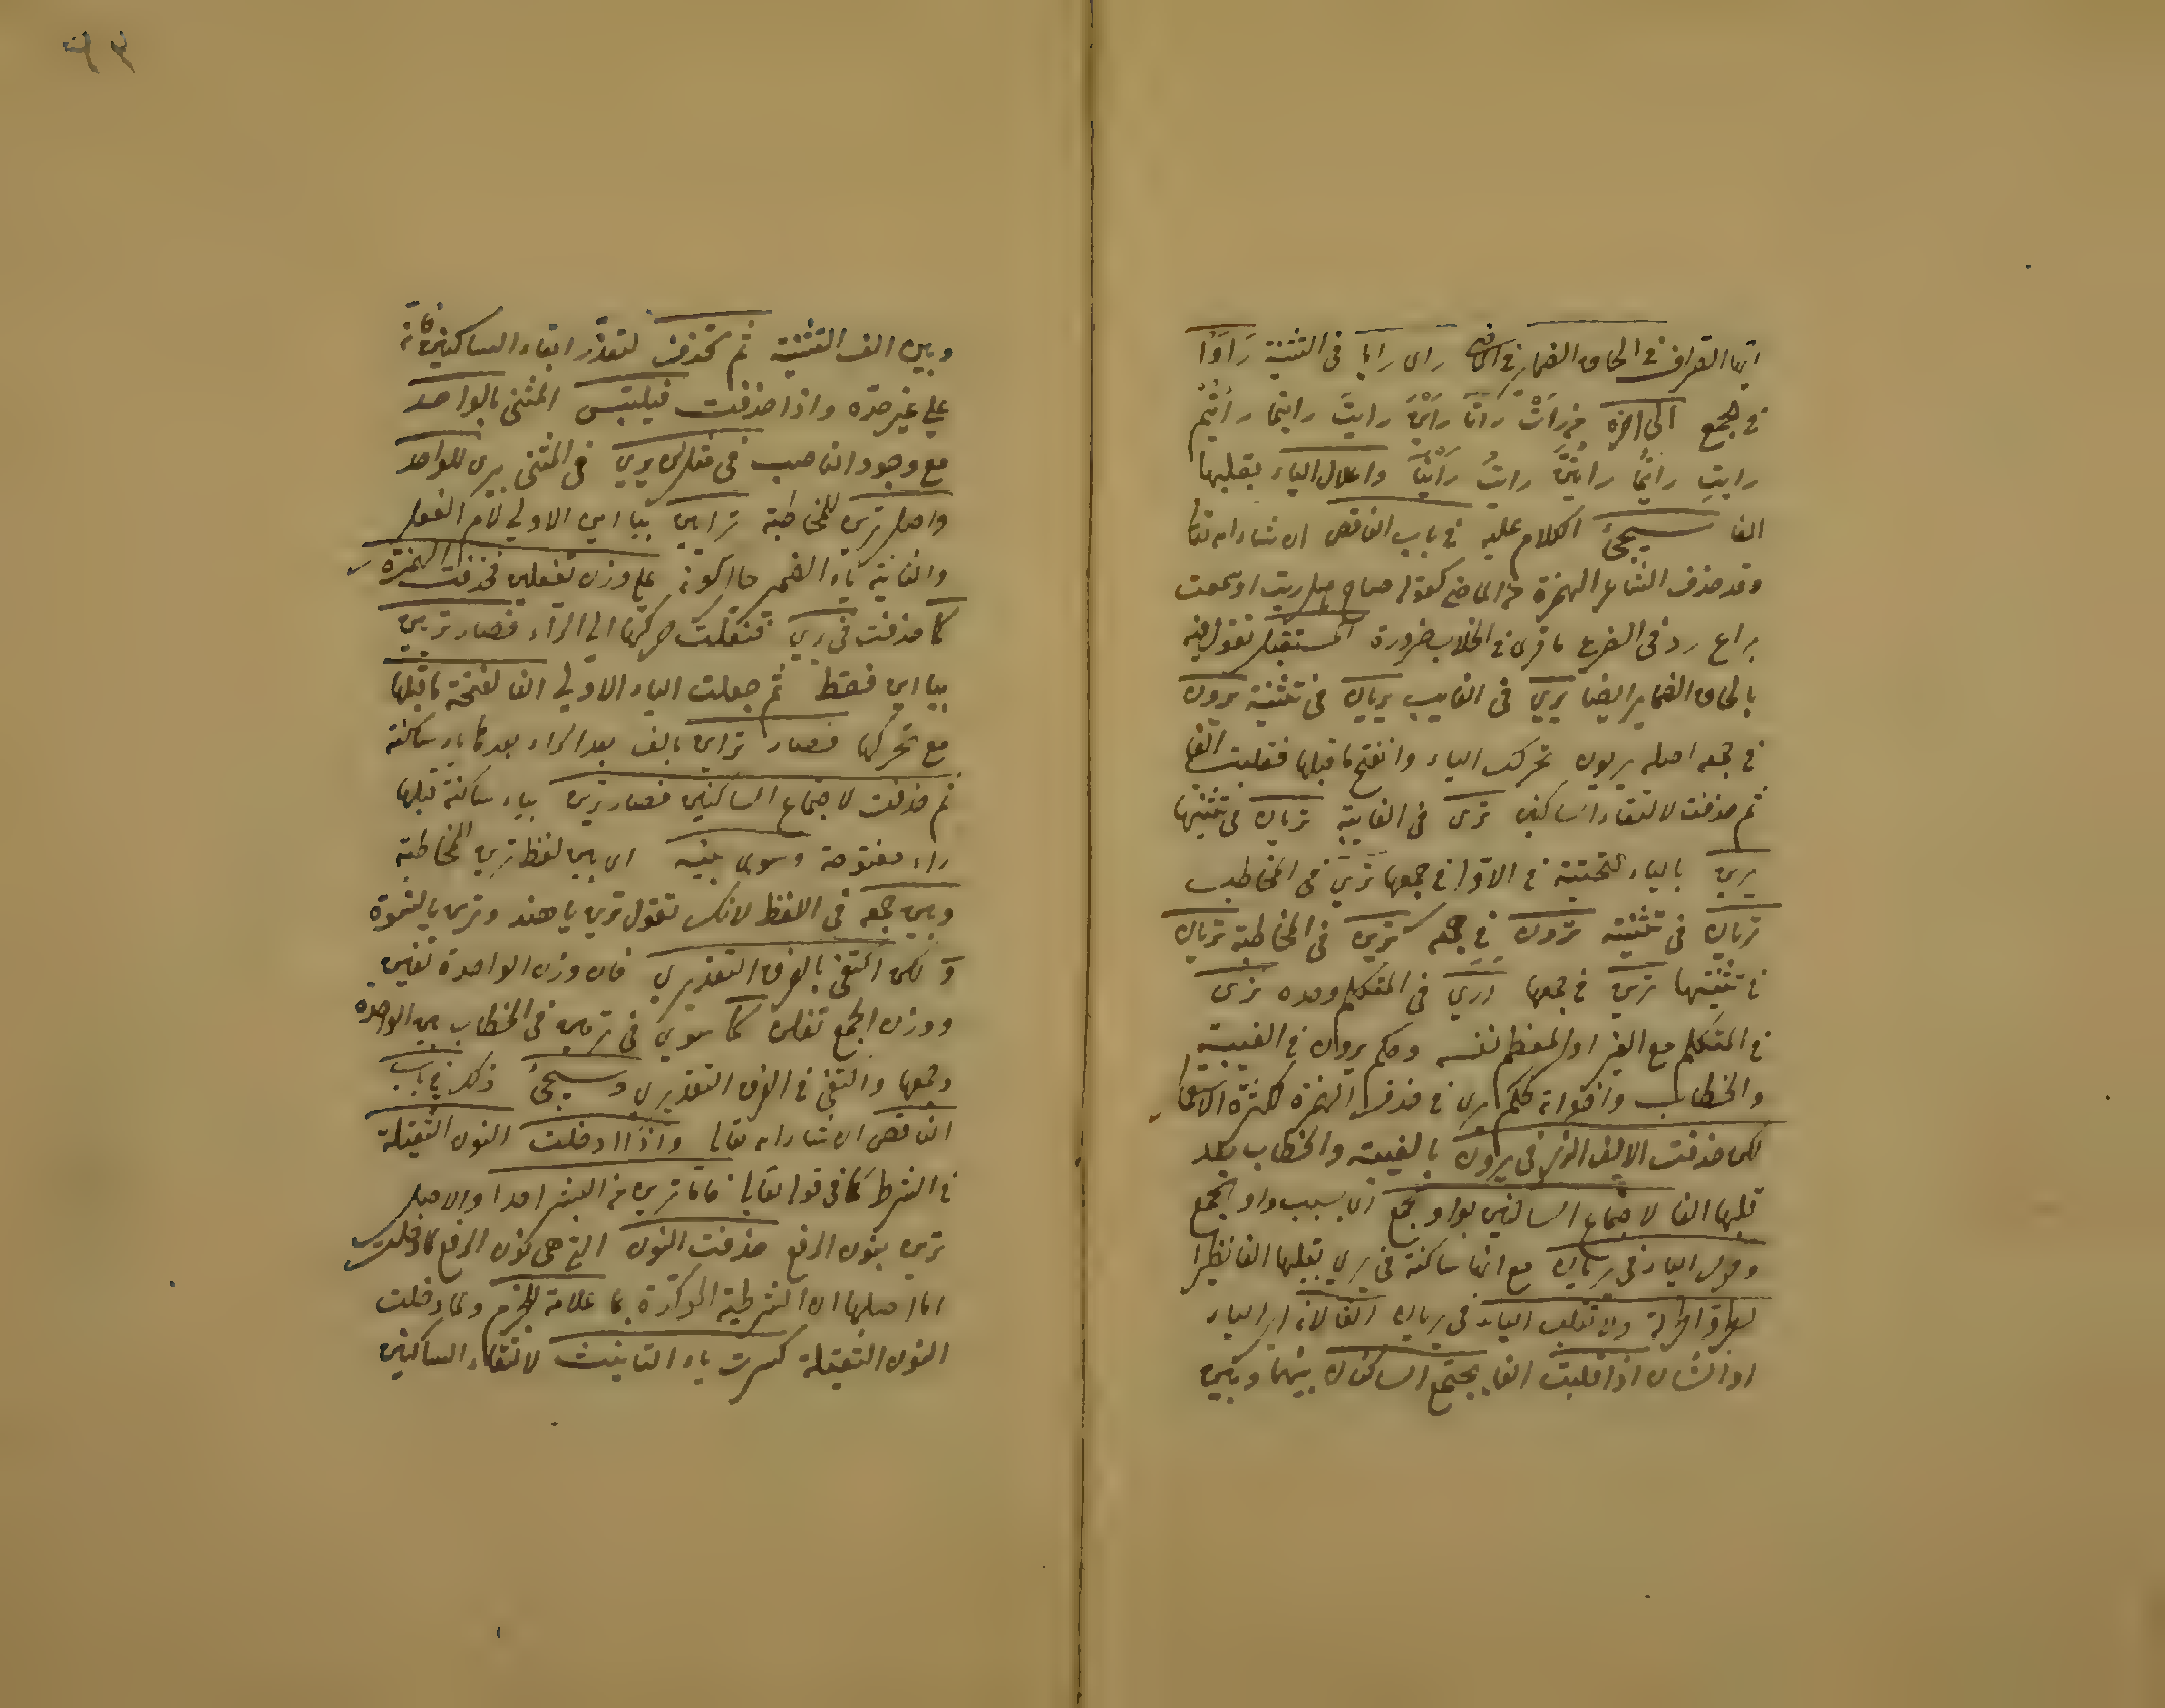 ايها الصراف في الحاق الضماير في الماضي راى رايا في التثنية رَاَوْا
في الجمع الى اخره من رَاَتْ رَاَتَا رَاَيْنَ رايتَ رايتما رايتُم
رايتِ رايتما رايتُنَّ رايتُ رَاَيْنَا واعلال الياء بقلبها
الفا سيجئ الكلام عليه في باب الناقص ان شاء الله تعالى
وقد حذف الشاعر الهمزة من الماضي كقوله صاح هل ريت او سمعت
براع رد في الضرع ما قرى في الحلاب ضرورة المستقبل تقول فيه
بالحاق الضماير ايضا يرى في الغايب يريان في تثنيته يرون
في جمعه اصله يريون تحركت الياء وانفتح ما قبلها فقلبت الفا
ثم حذفت لالتقاء الساكنين ترى في الغايبة تريان في تثنيتها
يرين بالياء التحتية في الاول في جمعها ترى في المخاطب
تريان في تثنيته ترون في جمعه ترين في المخاطبة تريان
في تثنيتها ترين في جمعها اَرَى في المتكلم وحده نرى
في المتكلم مع الغير او المعظم نفسه وحكم يرون في الغيبة
والخطاب واخواته كحكم يرى في حذف الهمزة لكثرة الاستعمال
لكن حذفت الالف التي في يرون بالغيبة والخطاب بعد
قلبها الفا لاجتماع الساكنين بواو الجمع اي بسبب واو الجمع
وحرك الياء في يريان مع انها ساكنة في يرى بقلبها الفا نظرا
لطرو الحركة ولا تقلب الياء في يريان الفا لانه اي الياء
او الشان اذا قلبت الفا يجتمع الساكنان بينهما وبين
وبين الف التثنية ثم تحذف لتعذر ابقاء الساكنين فانه
على غير حده واذا حذفت فيلتبس المثنى بالواحد
مع وجود الناصب في مثل لن يرى في المثنى يرى للواحد
واصل ترين للمخاطبة ترايين بيا اين الاولى لام الفعل
والثانية ياء الضمير حال كونه على وزن تفعلين فحذفت الهمزة
كما حذفت في يرى فنقلت حركتها الى الراء فصار تريين
بيا اين فقط ثم جعلت الياء الاولى الفا لفتحة ما قبلها
مع تحركها فصار تراين بالف بعد الراء بعدها ياء ساكنة
ثم حذفت لاجتماع الساكنين فصار ترين بياء ساكنة قبلها
راء مفتوحة وسوى بينه اي بين لفظ ترين المخاطبة
وبين جمعه في اللفظ لانك تقول ترين يا هند وترين يا نسوة
ولكن اكتفى بالفرق التقديري فان وزن الواحدة تفين
ووزن الجمع تفلن كما سوى في ترمين في الخطاب بين الواحدة
وجمعها واكتفى في الفرق التقديري وسيجئ ذلك في باب
الناقص ان شاء الله تعالى واذا ادخلت النون الثقيلة
في الشرط كما في قوله تعالى فاما ترين من البشر احدا والاصل
ترين بنون الرفع حذفت النون التي هي نون الرفع لما دخلت
اما اصلها ان الشرطية المؤكدة بما علامة للجزم ولما دخلت
النون الثقيلة كسرت ياء التانيث لالتقاء الساكنين